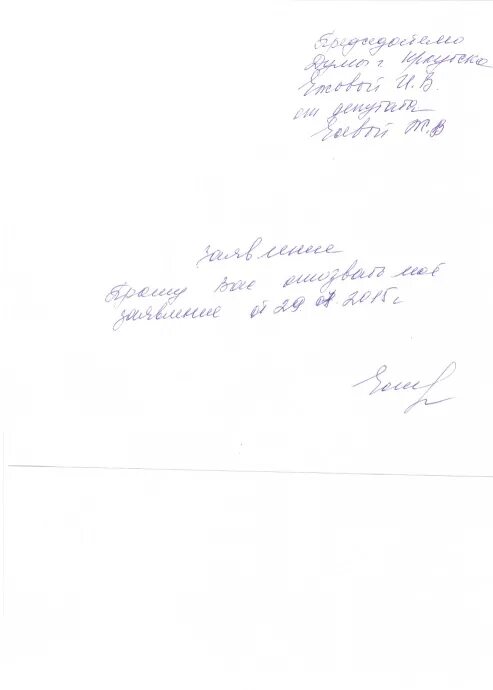 Председателю
Думы г Иркутска
Ежовой И.В.
от депутата
Еловой Т.В
заявление
Прошу Вас отозвать моё
заявление от 29.01.2015г